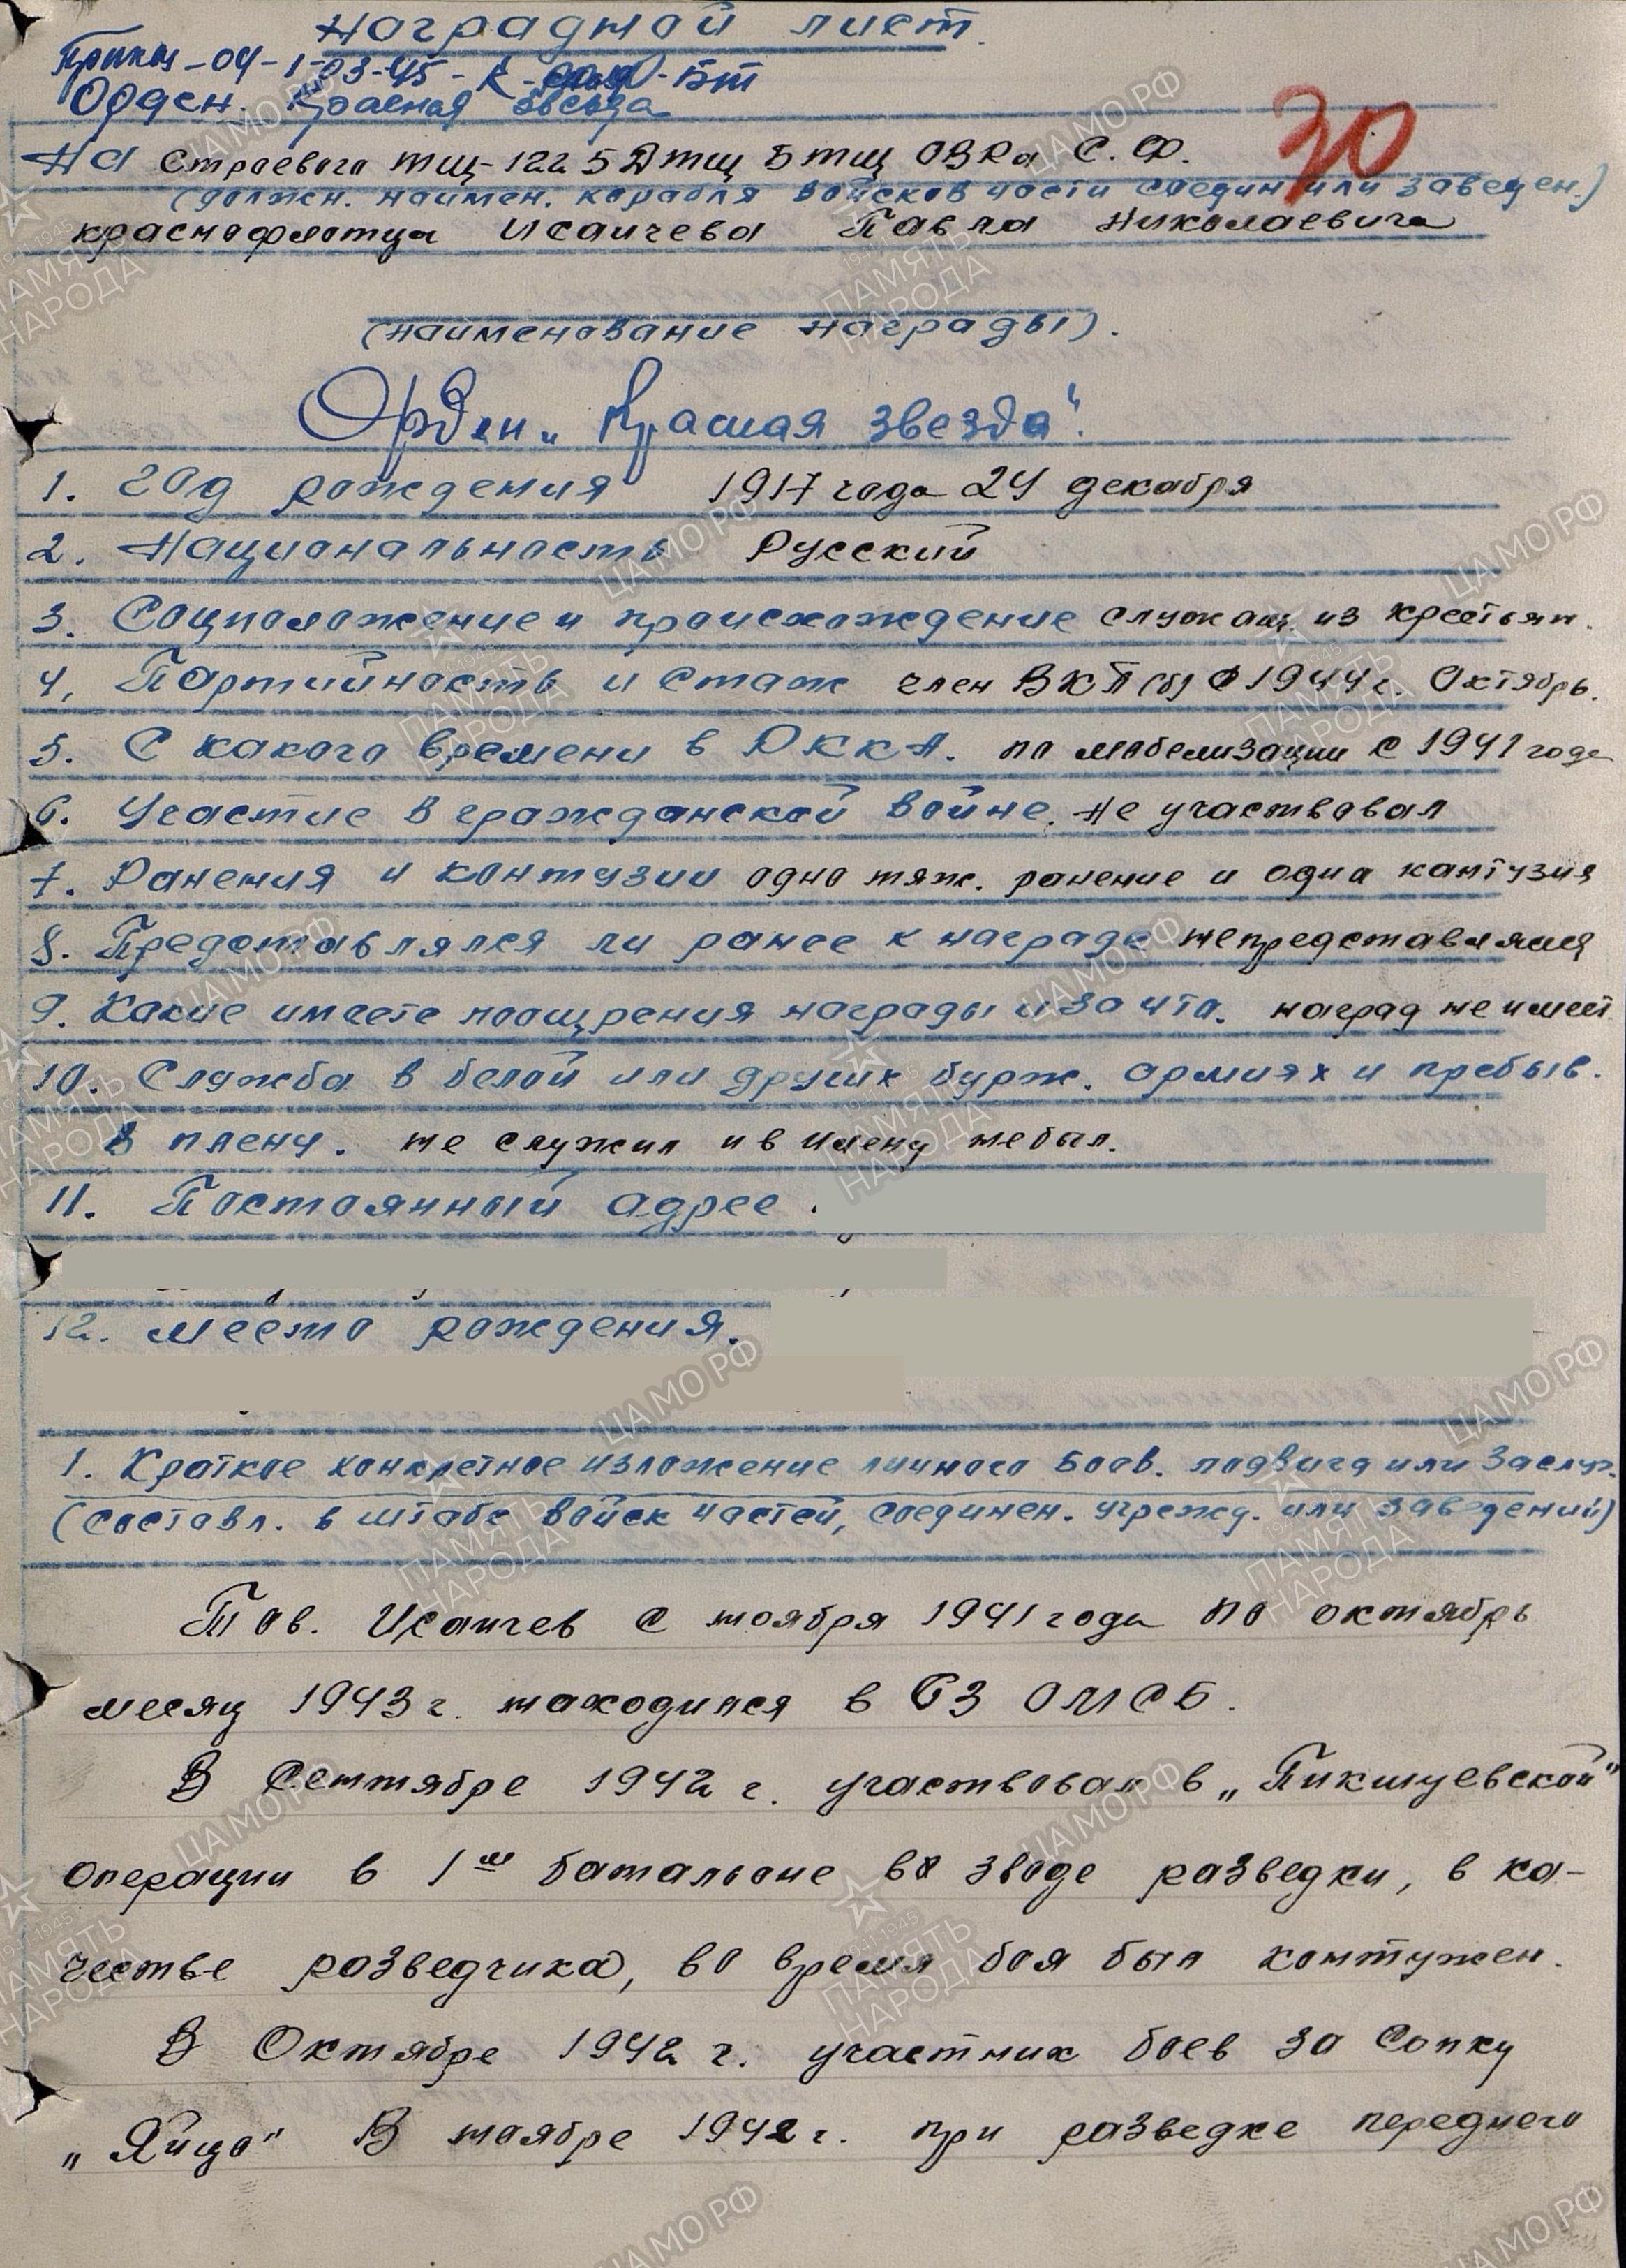 Наградной лист.
Приказ-04-1-03-45-К- -БТ
Орден. Красная звезда
30
На Строевого ТЩ-122 5 ДТЩ БТЩ ОВРа С.Ф.
(должн. наимен. корабля войсков части соедин или заведен.)
краснофлотца Исаичева Павла Николаевича
(наименование награды).
Орден „Красная звезда".
1. Год рождения 1917 года 24 декабря
2. Национальность Русский
3. Социоложение и происхождение служащ. из крестьян.
4. Партийность и стаж член ВКП(б) с 1944 г. Октябрь.
5. С какого времени в РККА. по мобелизации с 1941 года
6. Участие в гражданской войне. Не участвовал
7. Ранения и контузии одно тяж. ранение и одна кантузия
8. Представлялся ли ранее к награде непредставлялся
9. Какие имеете поощрения награды и за что. наград не имеет
10. Служба в белой или других бурж. армиях и пребыв.
в плену. не служил и в плену небыл.
11. Постоянный адрес.
12. Место рождения.
1. Краткое конкретное изложение личного боев. подвига или заслуг.
(составл. в штабе войск частей, соединен. учрежд. или заведений)
Тов. Исаичев с ноября 1941 года по октябрь
месяц 1943 г. находился в 63 ОМСБ.
В Сентябре 1942 г. участвовал в „Пикшуевской"
операции в 1ᵐ батальоне во зводе разведки, в ка-
честве разведчика, во время боя был контужен.
В Октябре 1942 г. участник боев за Сопку
„Яйцо" В ноябре 1942 г. при разведке переднего
ЦАМО РФ
ПАМЯТЬ
НАРОДА